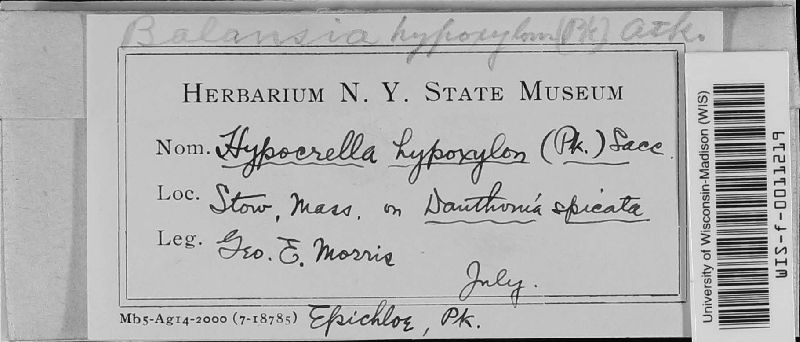 Balansia hypoxylon (Pk) Atk.
HERBARIUM N. Y. STATE MUSEUM
Nom. Hypocrella hypoxylon (Pk.) Sacc.
Loc. Stow, Mass. on Danthonia spicata
Leg. Geo. E. Morris
July.
Mb5-Ag14-2000 (7-18785) Epichloe, Pk.
University of Wisconsin-Madison (WIS)
WIS-f-0011219